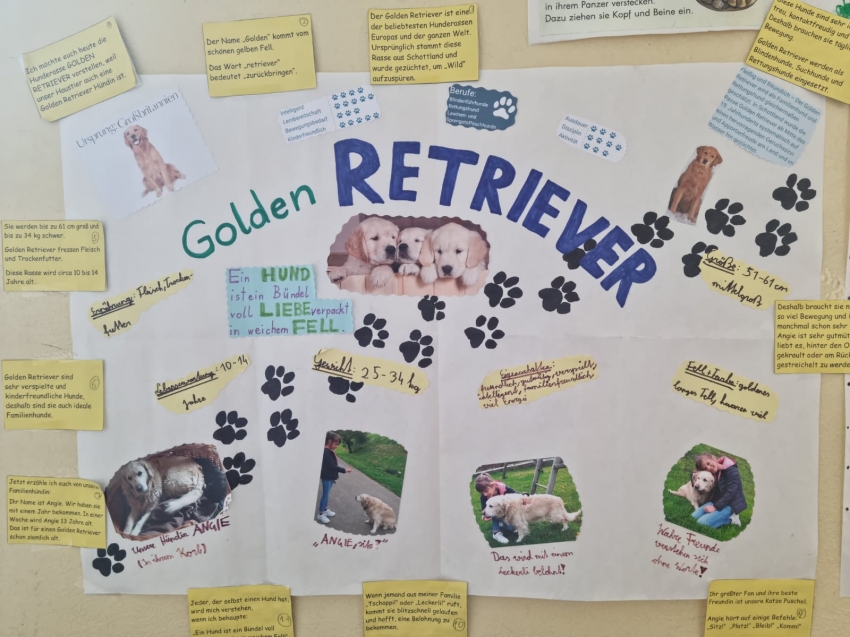 in ihrem Panzer verstecken.
Dazu ziehen sie Kopf und Beine ein.
Ich möchte euch heute die
Hunderasse GOLDEN
RETRIEVER vorstellen, weil
unser Haustier auch eine
Golden Retriever Hündin ist.
Der Name „Golden" kommt vom
schönen gelben Fell.
Das Wort „retriever"
bedeutet „zurückbringen".
Der Golden Retriever ist eine
der beliebtesten Hunderassen
Europas und der ganzen Welt.
Ursprünglich stammt diese
Rasse aus Schottland und
wurde gezüchtet, um „Wild"
aufzuspüren.
Diese Hunde sind sehr
treu, kontaktfreudig und
Deshalb brauchen sie täglich
Bewegung.
Golden Retriever werden als
Blindenhunde, Suchhunde und
Rettungshunde eingesetzt.
Ursprung: Großbritannien
Intelligend
Lernbereitschaft
Bewegungsbedarf
Kinderfreundlich
Berufe:
Blindenführhunde
Rettungshund
Lawinen- und
Sprengstoffsuchhunde
Ausdauer
Disziplin
Aktivität
Golden RETRIEVER
Sie werden bis zu 61 cm groß und
bis zu 34 kg schwer.
Golden Retriever fressen Fleisch
und Trockenfutter.
Diese Rasse wird circa 10 bis 14
Jahre alt.
Ernährung: Fleisch, Trocken-
futter
Ein HUND
ist ein Bündel
voll LIEBE verpackt
in weichem FELL.
Größe: 51-61 cm
mittelgroß
Deshalb braucht sie
so viel Bewegung und
manchmal schon sehr
Angie ist sehr gutmüt
liebt es, hinter den O
gekrault oder am Rüc
gestreichelt zu werde
Golden Retriever sind
sehr verspielte und
kinderfreundliche Hunde,
deshalb sind sie auch ideale
Familienhunde.
6
Lebenserwartung: 10-14
Jahre
Gewicht: 25-34 kg
Eigenschaften:
freundlich, zuverlässig, verspielt,
intelligent, familienfreundlich
viel Energie
Fell+Farbe: goldenes
langes Fell,
Jetzt erzähle ich euch von unserer
Familienhündin:
Ihr Name ist Angie. Wir haben sie
mit einem Jahr bekommen. In einer
Woche wird Angie 13 Jahre alt.
Das ist für einen Golden Retriever
schon ziemlich alt.
Unsere Hündin ANGIE
(in ihrem Korb)
„ANGIE, sitz!"
Das wird mit einem
Leckerli belohnt!
Wahre Freunde
verstehen sich
ohne Worte!
Jeder, der selbst einen Hund hat,
wird mich verstehen,
wenn ich behaupte:
„Ein Hund ist ein Bündel voll
Wenn jemand aus meiner Familie
„Tschappi" oder „Leckerli" ruft,
kommt sie blitzschnell gelaufen
und hofft, eine Belohnung zu
bekommen.
10
Ihr größter Fan und ihre beste
Freundin ist unsere Katze Puschel.
Angie hört auf einige Befehle:
„Sitz!" „Platz!" „Bleib!" „Komm!"